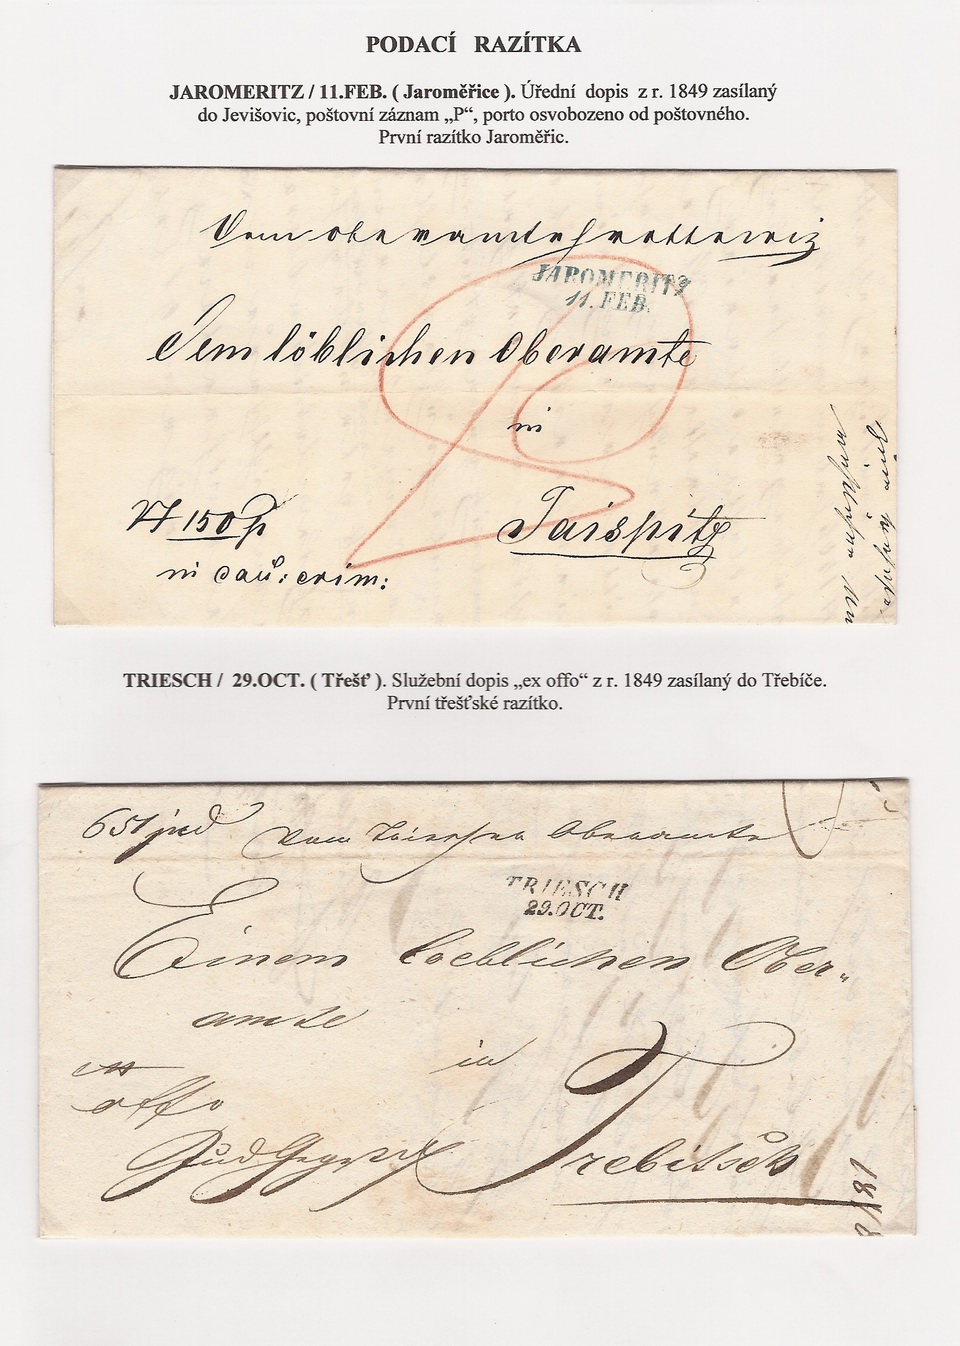 PODACÍ RAZÍTKA
JAROMERITZ / 11.FEB. ( Jaroměřice ). Úřední dopis z r. 1849 zasílaný
do Jevišovic, poštovní záznam „P“, porto osvobozeno od poštovného.
První razítko Jaroměřic.
Vom oberamte
JAROMERITZ
11. FEB.
Dem löblichen Oberamte
in
150
Jaispitz
in cau: crim:
TRIESCH / 29.OCT. ( Třešť ). Služební dopis „ex offo“ z r. 1849 zasílaný do Třebíče.
První třešťské razítko.
651 jud Vom Triescher Oberamte
TRIESCH
29.OCT.
Einem loeblichen Ober„
amte
in
ex
offo
Trebitsch